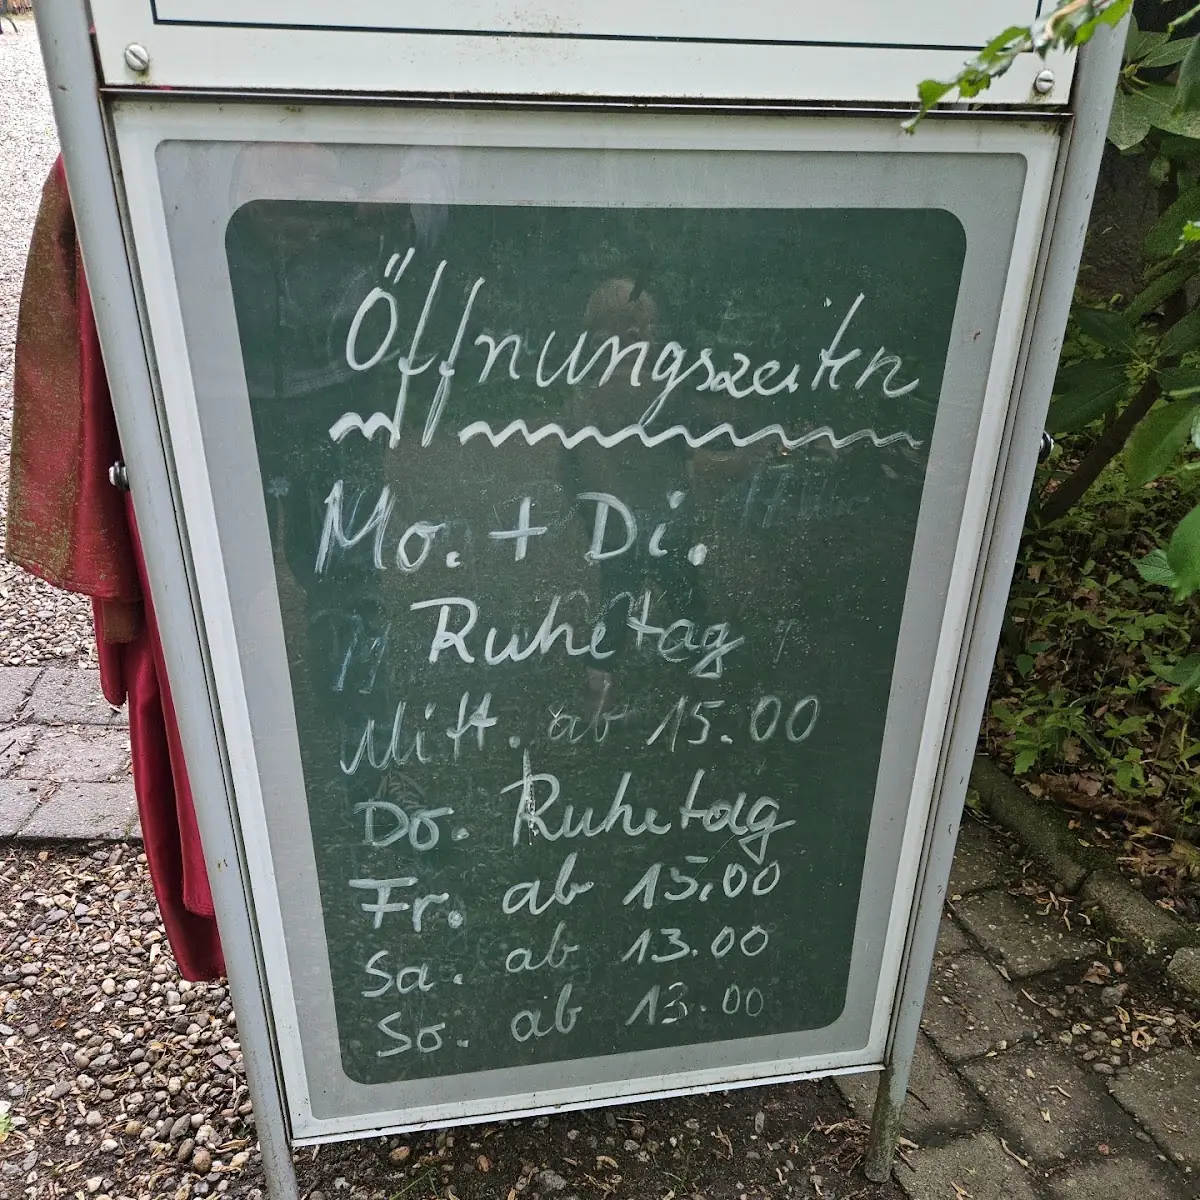 Öffnungszeiten
Mo. + Di.
Ruhetag
Mitt. ab 15.00
Do. Ruhetag
Fr. ab 15.00
Sa. ab 13.00
So. ab 13.00